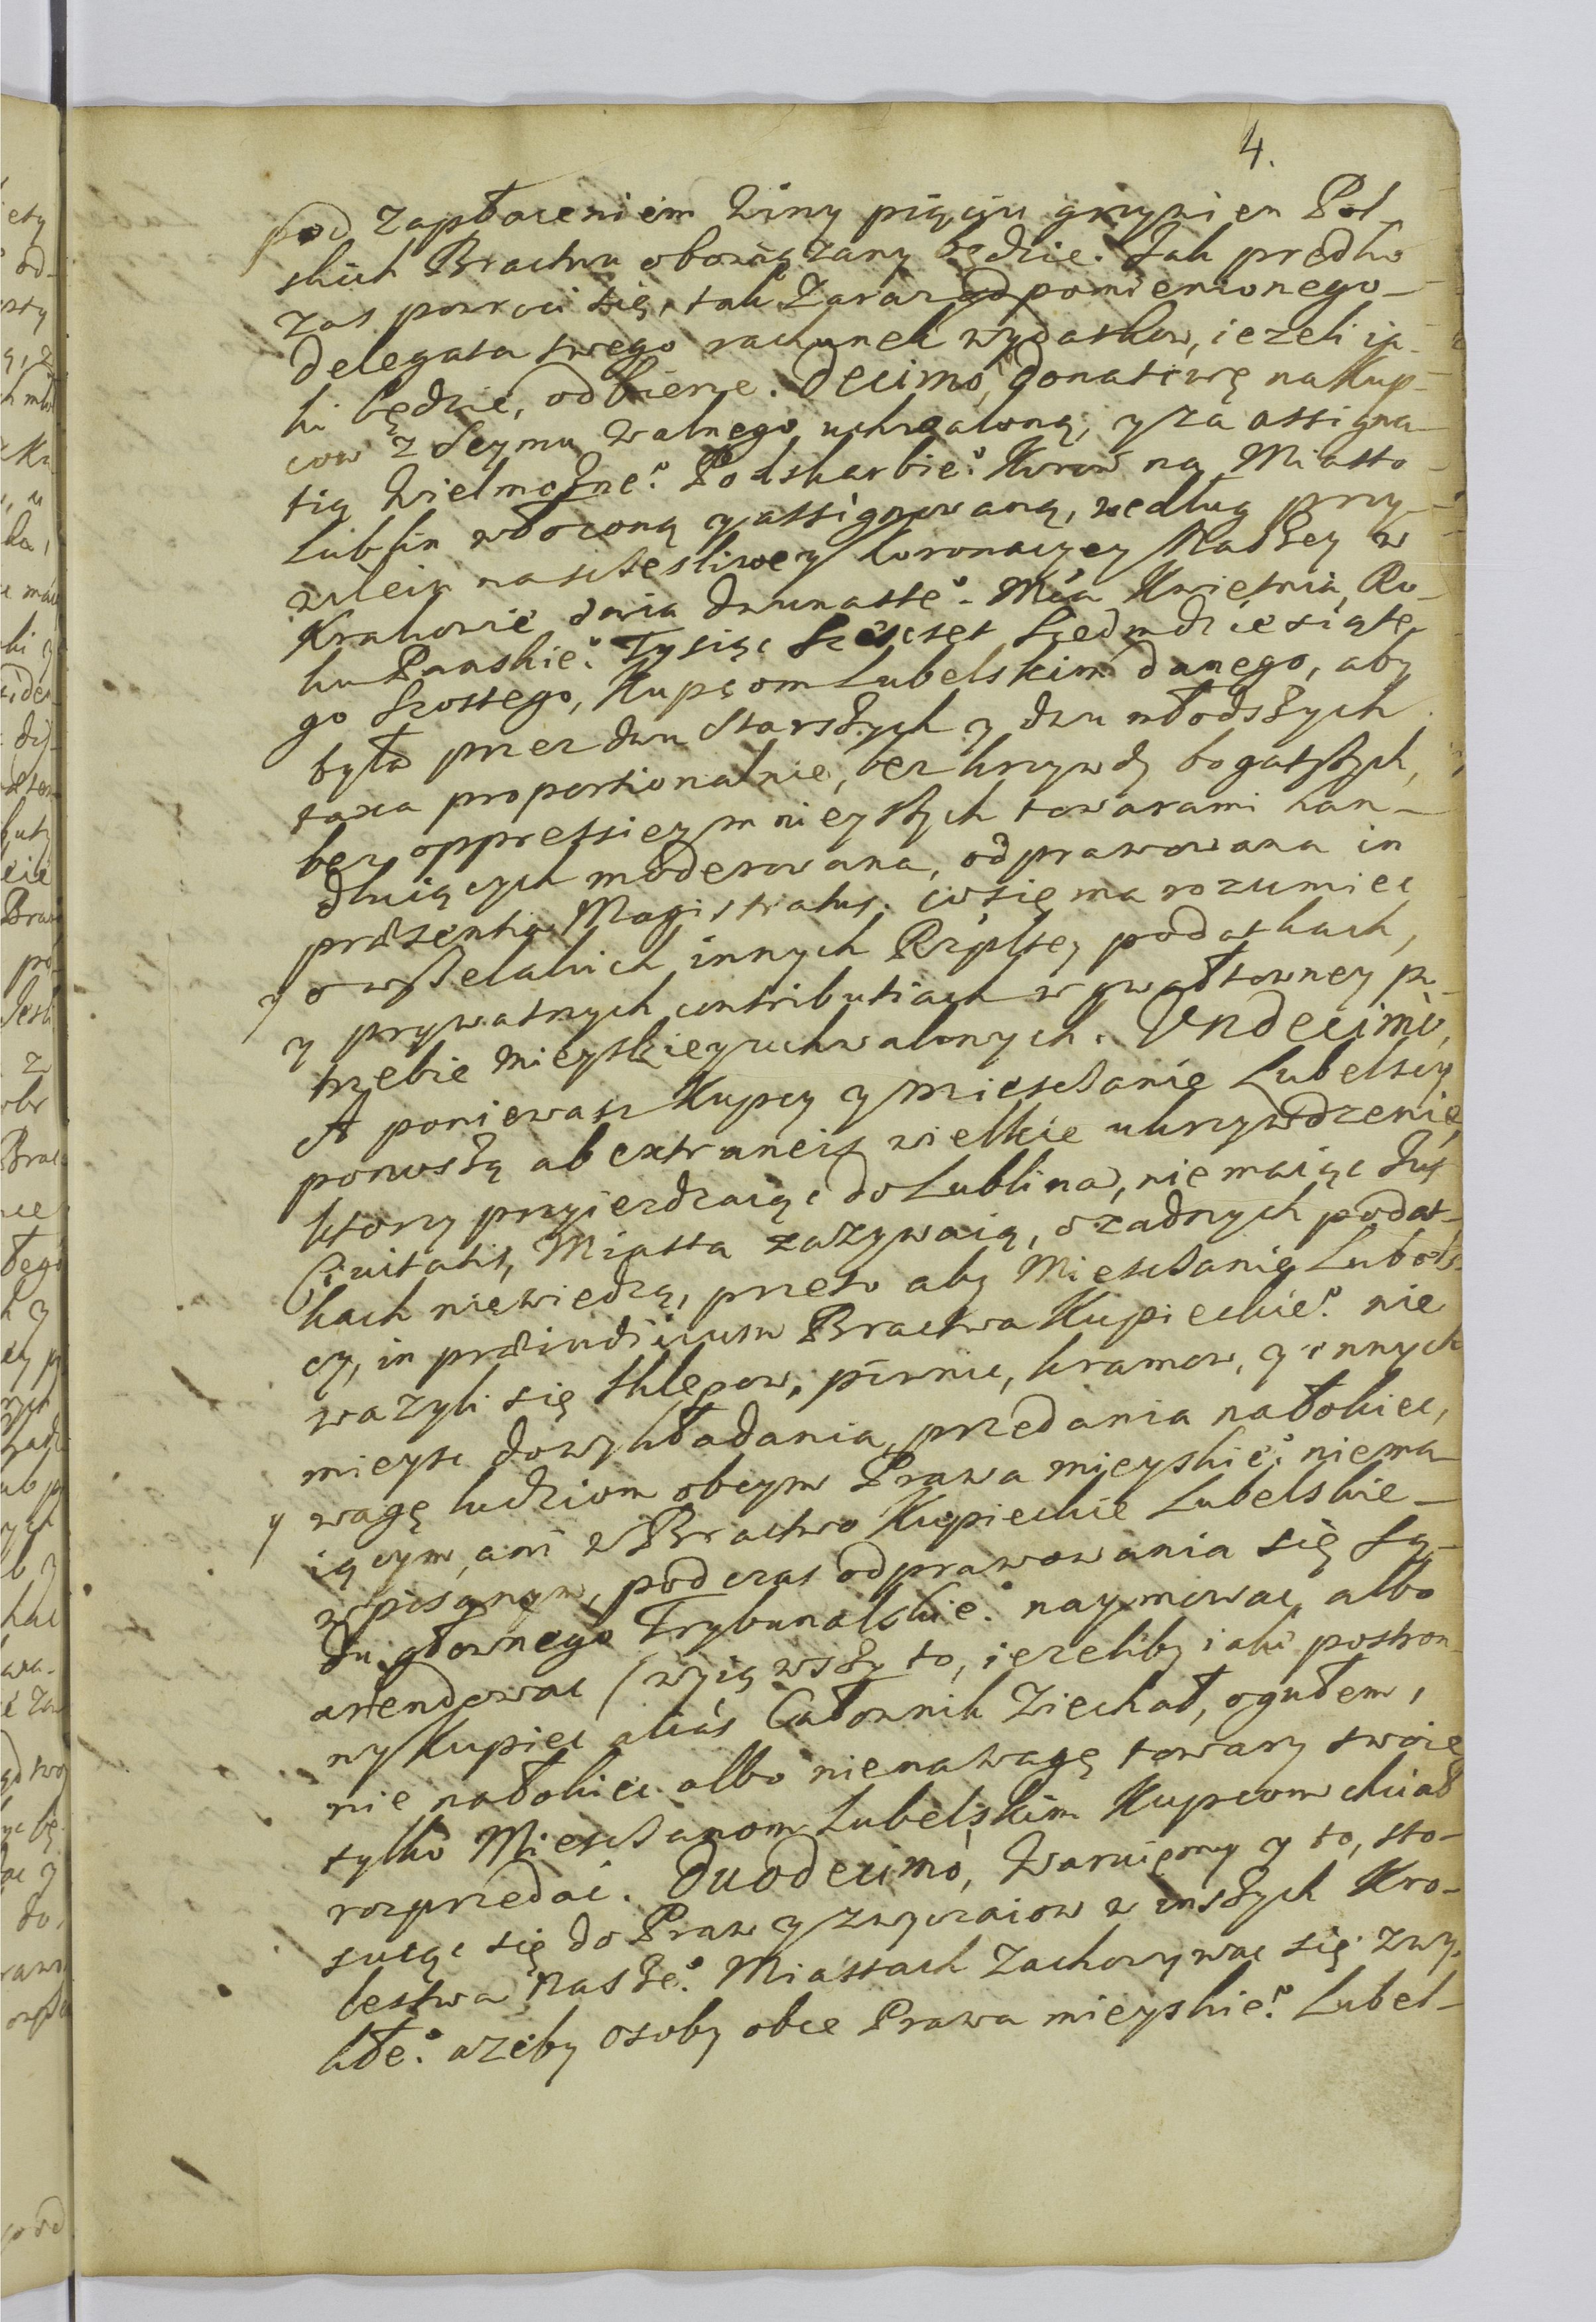 4.
pod zapłaceniem winy pięciu grzywien Pol-
skich Bractwu obowiązany będzie. Jak prędko
zas powroci się, tak zaraz od pomienionego
delegata swego rachunek wydatkow, ieżeli ja-
ki będzie, odbierze. Decimò, donatiwę na Kup-
cow z Seymu walnego uchwaloną, y za assigna-
tią Wielmożne.º Podskarbie.º Koron na Miasto
Lublin włożoną y assignowaną, według przy-
wileiu naszczesliwey koronacyey Naszey w
Krakowie dnia dwunaste.º Mca Kwietnia, Ro-
ku Panskie.º Tysiąc Szescset Siedmdziesiąte-
go Szostego, Kupcom Lubelskim danego, aby
była przez dwu Starszych y dwu młodszych
taxa proportionalnie, bez krzywdy bogatszych,
bez oppressiey mnieyszych towarami han-
dluiących moderowana, odprawowana in
præsentia Magistratus. Co się ma rozumiec
y o wszelakich innych Rzpltey podatkach,
y prywatnych contributiach w gwałtowney po-
trzebie mieyskiey uchwalonych. Vndecimò,
A poniewasz Kupcy y Mieszczanie Lubelscy
ponoszą ab extraneis wielkie ukrzywdzenie,
ktorzy przyiezdzaiąc do Lublina, nie maiąc Jus
Civitatis, Miasta zazywaią, o zadnych podat-
kach niewiedzą, przeto aby Mieszczanie Lubels-
cy, in præiudicium Bractwa Kupieckie.º nie
wazyli się sklepow, piwnic, kramow, y innych
mieysc dowykładania, przedania nałokiec,
y wagę ludziom obcym Prawa mieyskie.º niema-
iącym, ani w Bractwo Kupieckie Lubelskie
wpisanym, podczas odprawowania się Są-
du głownego Trybunalskie.º naymowac, albo
arendowac (wyiąwszy to, iezeliby iaki postron-
ny Kupiec aliàs Całownik ziechał, ogułem,
nie nałokiec albo nienawagę towary swoie
tylko Mieszczanom Lubelskim Kupcom chciał
rozprzedac. Duodecimò, Waruiemy y to, sto-
suiąc się do Praw y zwyczaiow w inszych Kro-
lestwa Nasze.º Miastach zachowywac się zwy-
kłe.º azeby osoby obce Prawa mieyskie.º Lubel-